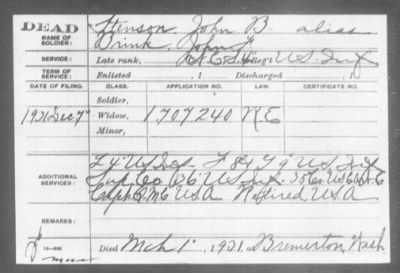 DEAD
NAME OF SOLDIER:
Stenson, John B. alias
Brink, John F.
SERVICE:
Late rank, N.C.S. U.S. Inf
TERM OF SERVICE:
Enlisted , 1 Discharged , 1
DATE OF FILING. CLASS. APPLICATION NO. LAW. CERTIFICATE NO.
Soldier,
1921 Dec 7 Widow, 1707240 R E
Minor,
ADDITIONAL SERVICES:
L 4" U.S. Inf F 8 & G 9" U.S. Inf
Sup Co 136" U.S. Inf. 35 Co. U.S.
Q M C U.S.A Retired U.S.A
REMARKS:
Died Mch 1" , 1921, Bremerton, Wash